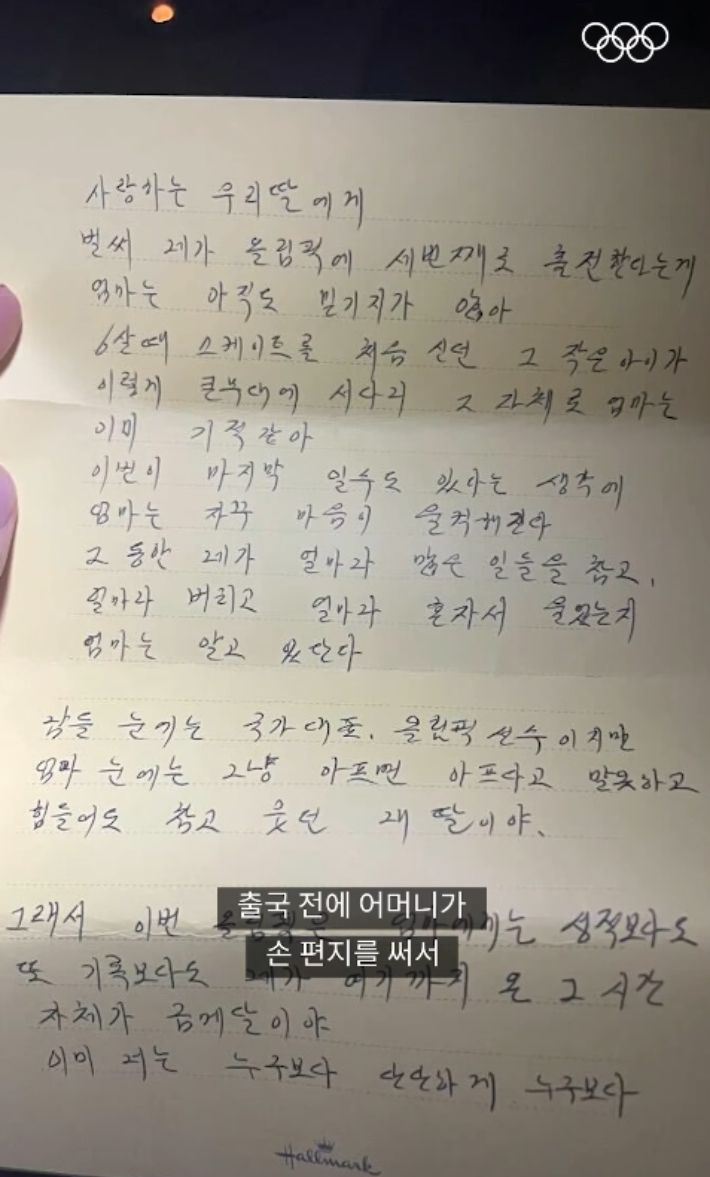 사랑하는 우리딸에게
벌써 레가 올림픽에 세번째로 출전한다는게
엄마는 아직도 믿기지가 않아
6살때 스케이트를 처음 신던 그 작은아이가
이렇게 큰무대에 서다니 그 자체로 엄마는
이미 기적같아
이번이 마지막 일수도 있다는 생각에
엄마는 자꾸 마음이 울컥해진다
그 동안 레가 얼마나 많은 일들을 참고,
얼마나 버리고 얼마나 혼자서 울었는지
엄마는 알고 있단다
남들 눈에는 국가대표, 올림픽 선수이지만
엄마 눈에는 그냥 아프면 아프다고 말못하고
힘들어도 참고 웃던 내 딸이야.
그래서 이번 올림픽은 엄마에게는 성적보다도
출국 전에 어머니가
손 편지를 써서
또 기록보다도 레가 여기까지 온 그 시간
자체가 금메달이야
이미 너는 누구보다 단단하게 누구보다
Hallmark